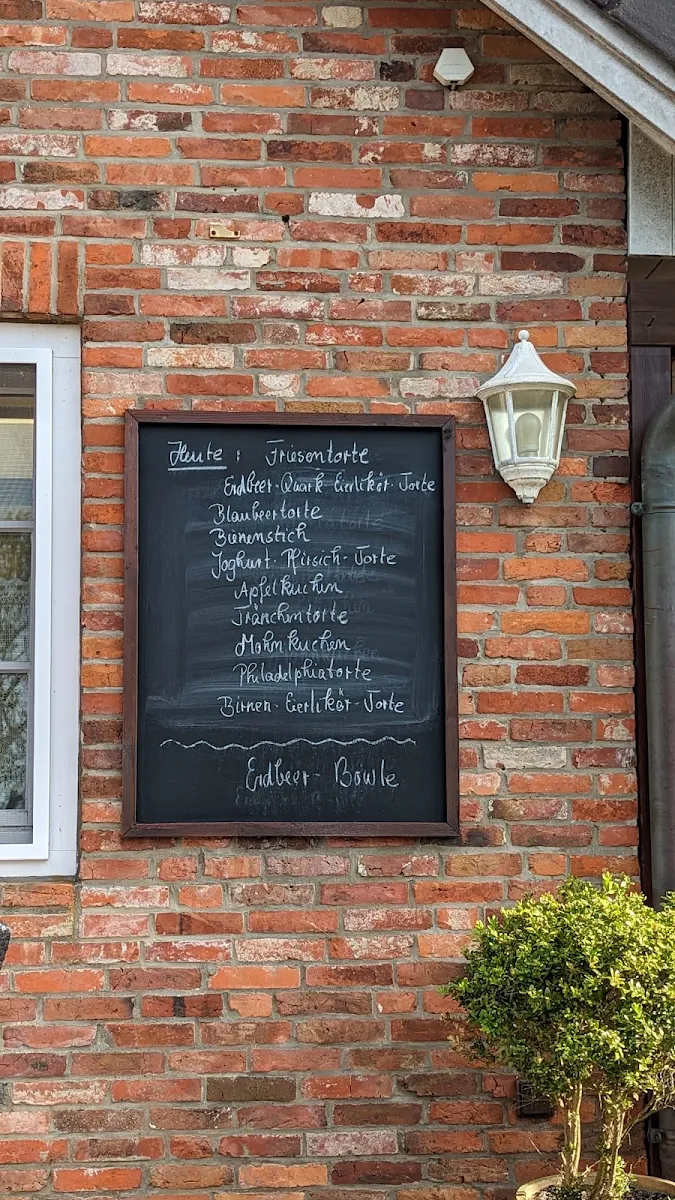 Heute : Friesentorte
Erdbeer-Quark-Eierlikör-Torte
Blaubeertorte
Bienenstich
Joghurt-Pfirsich-Torte
Apfelkuchen
Tränchentorte
Mohnkuchen
Philadelphiatorte
Birnen-Eierlikör-Torte
Erdbeer-Bowle